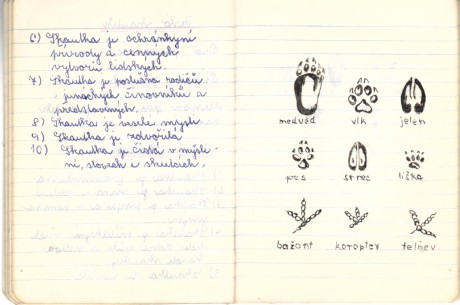 6) Skautka je ochránkyní
přírody a cenných
výtvorů lidských.
7) Skautka je poslušna rodičů
junáckých činovníků a
představených.
8) Skautka je veselé mysli
9) Skautka je zdvořilá
10) Skautka je čistá v myšle-
ní, slovech i skutcích.
medvěd vlk jelen
pes srnec liška
bažant koroptev tetřev